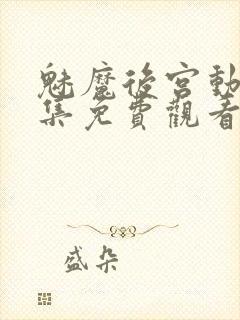 魅魔後宮動
集免費觀看
盛朵